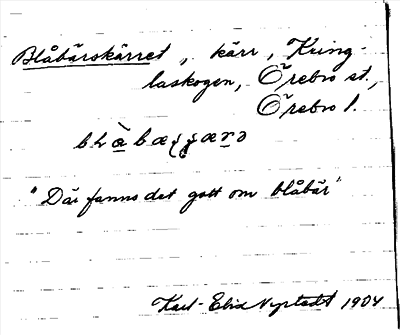 Blåbärskärret, kärr, Kring-
laskogen, Örebro st.,
Örebro l.
"Där fanns det gott om blåbär"
Karl-Ebid 1904